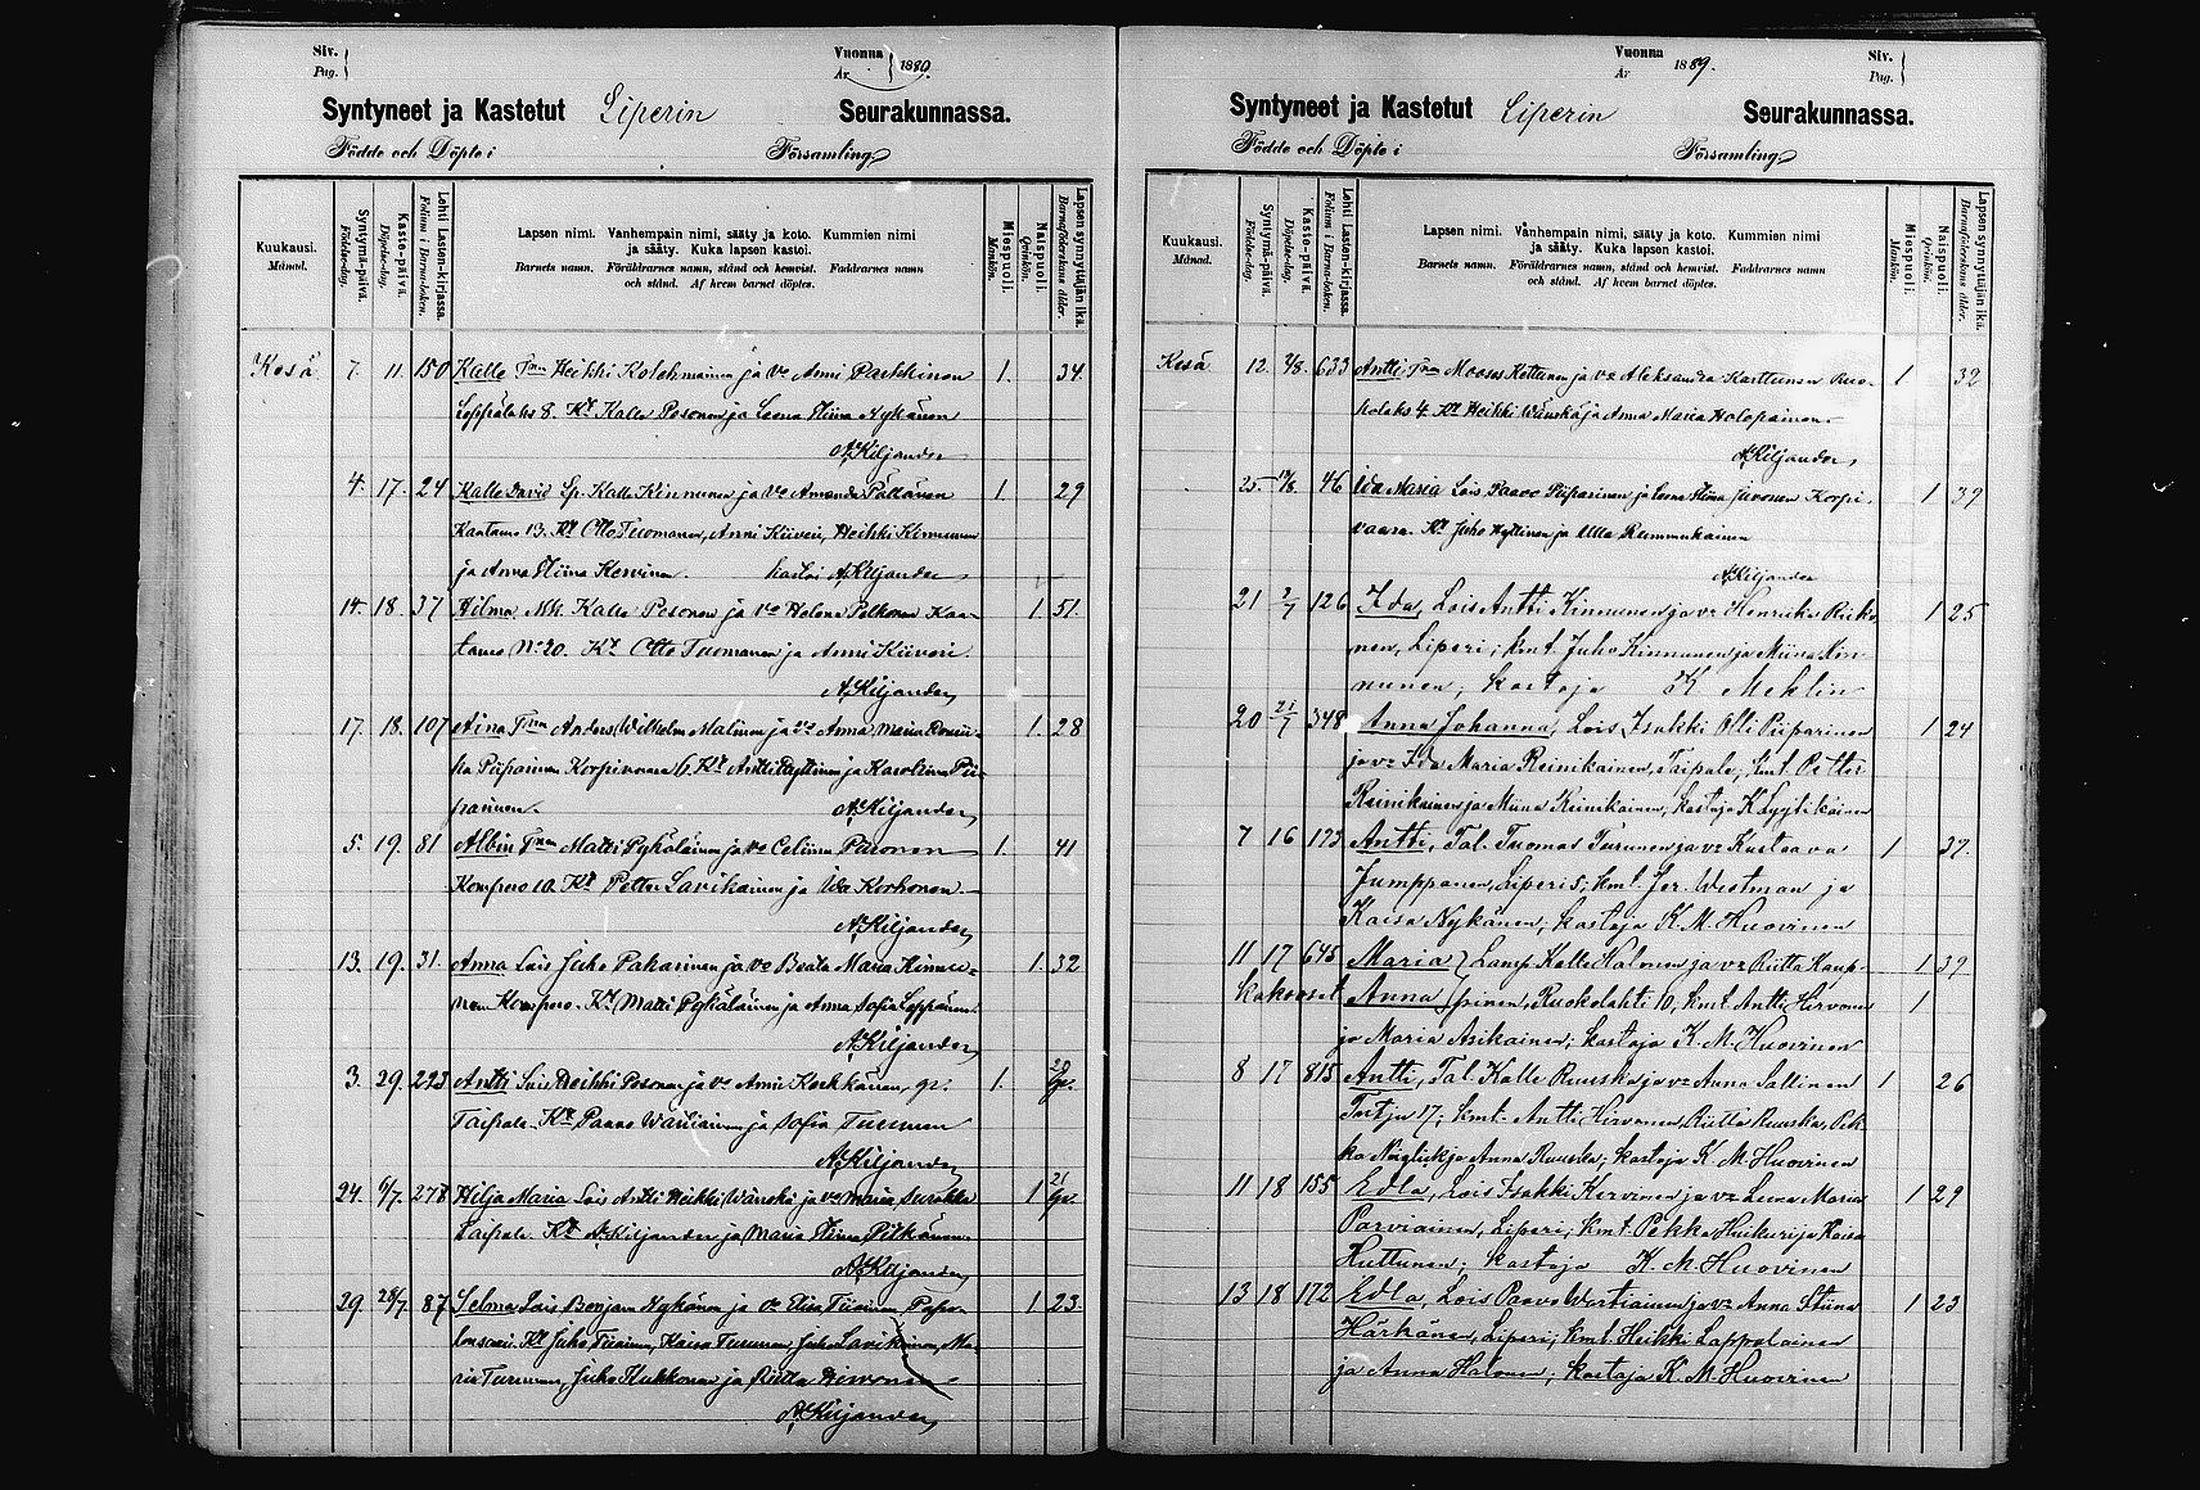 Siv.
Pag.
Vuonna
År
1889.
Syntyneet ja Kastetut Liperin Seurakunnassa.
Födde och Döpte i Församling
Kuukausi.
Månad.
Syntymä-päivä.
Födelse-dag.
Kaste-päivä.
Döpelse-dag.
Lehti Lasten-kirjassa.
Folium i Barna-boken.
Lapsen nimi. Vanhempain nimi, sääty ja koto. Kummien nimi
ja sääty. Kuka lapsen kastoi.
Barnets namn. Föräldrarnes namn, stånd och hemvist. Faddrarnes namn
och stånd. Af hvem barnet döptes.
Miespuoli.
Mankön.
Naispuoli.
Qvinkön.
Lapsen synnyttäjän ikä.
Barnaföderskans ålder.
Kesä 7. 11. 150 Kalle Heikki Kolehmainen ja vo Anni Parkkinen 1. 34.
Leppälaks 8. Kt Kalle Pesonen ja Leena Stiina Nykänen
A. Kiljander
4. 17. 24 Kalle David Lp. Kalle Kinnunen ja vo Amanda Pällänen 1. 29
Kaatamo 13. Kt Otto Tuomanen, Anni Kiiveri, Heikki Kinnunen
ja Anna Stiina Kervinen. kastoi A. Kiljander
14. 18. 37 Hilma Mk. Kalle Pesonen ja vo Helena Pelkonen Kaa-
tamo No 20. Kt Otto Tuomanen ja Anni Kiiveri.
A. Kiljander
1. 51.
17. 18. 107 Aina Anders Wilhelm Malinen ja vo Anna Maria
Piiparinen Korpivaara 6. Kt Antti Hyttinen ja Karolina Pii-
parinen. A. Kiljander
1. 28
5. 19. 81 Albin Matti Pykäläinen ja vo Celiina Paronen 1. 41
Kompero 10. Kt Petter Savikainen ja Ida Korhonen.
A. Kiljander
13. 19. 31. Anna Lois Juho Pakarinen ja vo Beata Maria Kinnu- 1. 32
nen Kompero. Kt Matti Pykäläinen ja Anna Sofia Leppänen.
A. Kiljander
3. 29. 293 Antti Lois Heikki Pesonen ja vo Anni Keehkänen, gr. 1.
Taipale. Kt Paavo Wartiainen ja Sofia Turunen
A. Kiljander
24. 6/7. 278 Hilja Maria Lois Antti Heikki Wänskä ja vo Maria Surakka 1
Taipale. Kt A. Kiljander ja Maria Stiina Pitkänen
A. Kiljander
29. 28/7. 87 Selma Lois Benjam Nykänen ja vo Elisa Tiainen 1 23.
Kt Juho Tiainen, Kaisa Turunen, Juho Savikainen, Ma-
ria Turunen, Juho Kukkonen ja Riitta Hirvonen
A. Kiljander
Vuonna
År
1889.
Siv.
Pag.
Syntyneet ja Kastetut Liperin Seurakunnassa.
Födde och Döpte i Församling
Kuukausi.
Månad.
Syntymä-päivä.
Födelse-dag.
Kaste-päivä.
Döpelse-dag.
Lehti Lasten-kirjassa.
Folium i Barna-boken.
Lapsen nimi. Vanhempain nimi, sääty ja koto. Kummien nimi
ja sääty. Kuka lapsen kastoi.
Barnets namn. Föräldrarnes namn, stånd och hemvist. Faddrarnes namn
och stånd. Af hvem barnet döptes.
Miespuoli.
Mankön.
Naispuoli.
Qvinkön.
Lapsen synnyttäjän ikä.
Barnaföderskans ålder.
Kesä 12. 633 Antti Mooses Kettunen ja vo Aleksandra Karttunen Ruo- 1 32
kolaks 4. Kt Heikki Wänskä ja Anna Maria Holopainen
A. Kiljander
25. 46 Ida Maria Lois Paavo Piiparinen ja Leena Stiina Juvonen Korpi- 1 39
vaara. Kt Juho Hyttinen ja Ulla Rummukainen
A. Kiljander
21 2/7 126 Ida, Lois Antti Kinnunen ja vo Henriika Riiko 1 25
nen, Liperi; kmt. Juho Kinnunen ja Miina Kin-
nunen; kastaja K Mehlin
20 21/7 348 Anna Johanna, Lois Isakki Olli Piiparinen 1 24
ja vo Ida Maria Reinikainen, Taipale; kmt. Petter
Reinikainen ja Miina Reinikainen; kastaja K Lyytikäinen
7 16 173 Antti, Tal. Tuomas Turunen ja vo Kustaava 1 37.
Jumppanen, Liperi 5; kmt. Jer. Westman ja
Kaisa Nykänen; kastaja K. M. Huovinen
11 17 645 Maria Lamp. Kalle Halonen ja vo Riitta Kaup- 1 39
kaksoset Anna pinen, Ruokolahti 10; kmt Antti Hirvonen 1
ja Maria Asikainen; kastaja K. M. Huovinen
8 17 815 Antti, Tal. Kalle Ruuska ja vo Anna Sallinen 1 26
17; kmt. Antti Hirvonen, Riitta Ruuska, Pek-
ka ja Anna Ruuska; kastaja K. M. Huovinen
11 18 155 Edla, Lois Isakki Kervinen ja vo Leena Maria 1 29
Parviainen, Liperi; kmt. Pekka Huikuri ja Kaisa
Huttunen; kastaja K. M. Huovinen
13 18 172 Edla, Lois Paavo Wartiainen ja vo Anna Stiina 1 23
Härkänen, Liperi; kmt. Heikki Lappalainen
ja Anna Halonen; kastaja K. M. Huovinen